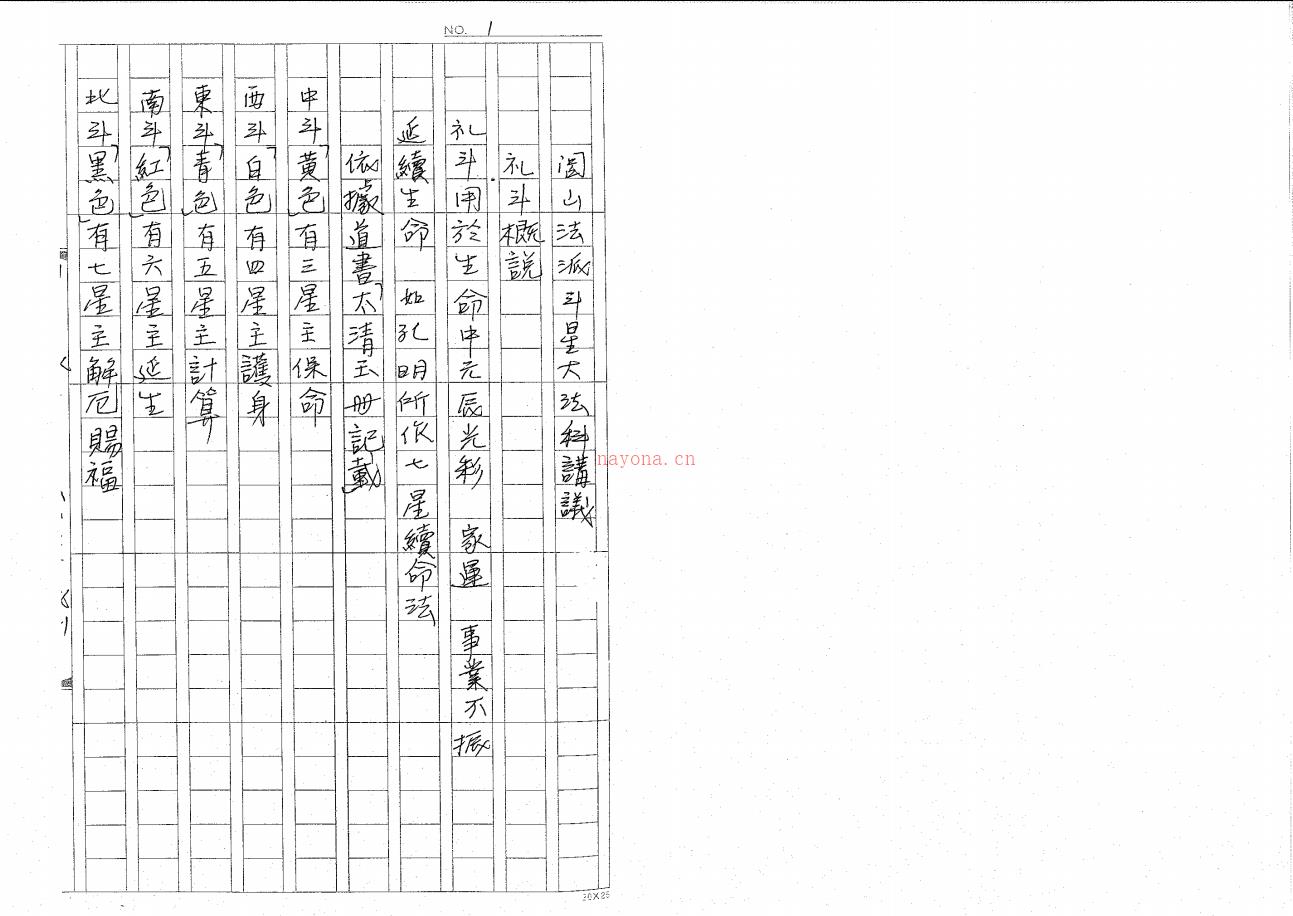 NO. 1
闾山法派斗星大法科講議
礼斗概説
礼斗用於生命中元辰光彩 家運 事業不振
延續生命 如孔明所作七星續命法
依據道書「太清玉册記載」
中斗「黃色」有三星主保命
西斗「白色」有四星主護身
東斗「青色」有五星主計算
南斗「紅色」有六星主延生
北斗「黑色」有七星主解厄賜福
nayona.cn
20X25